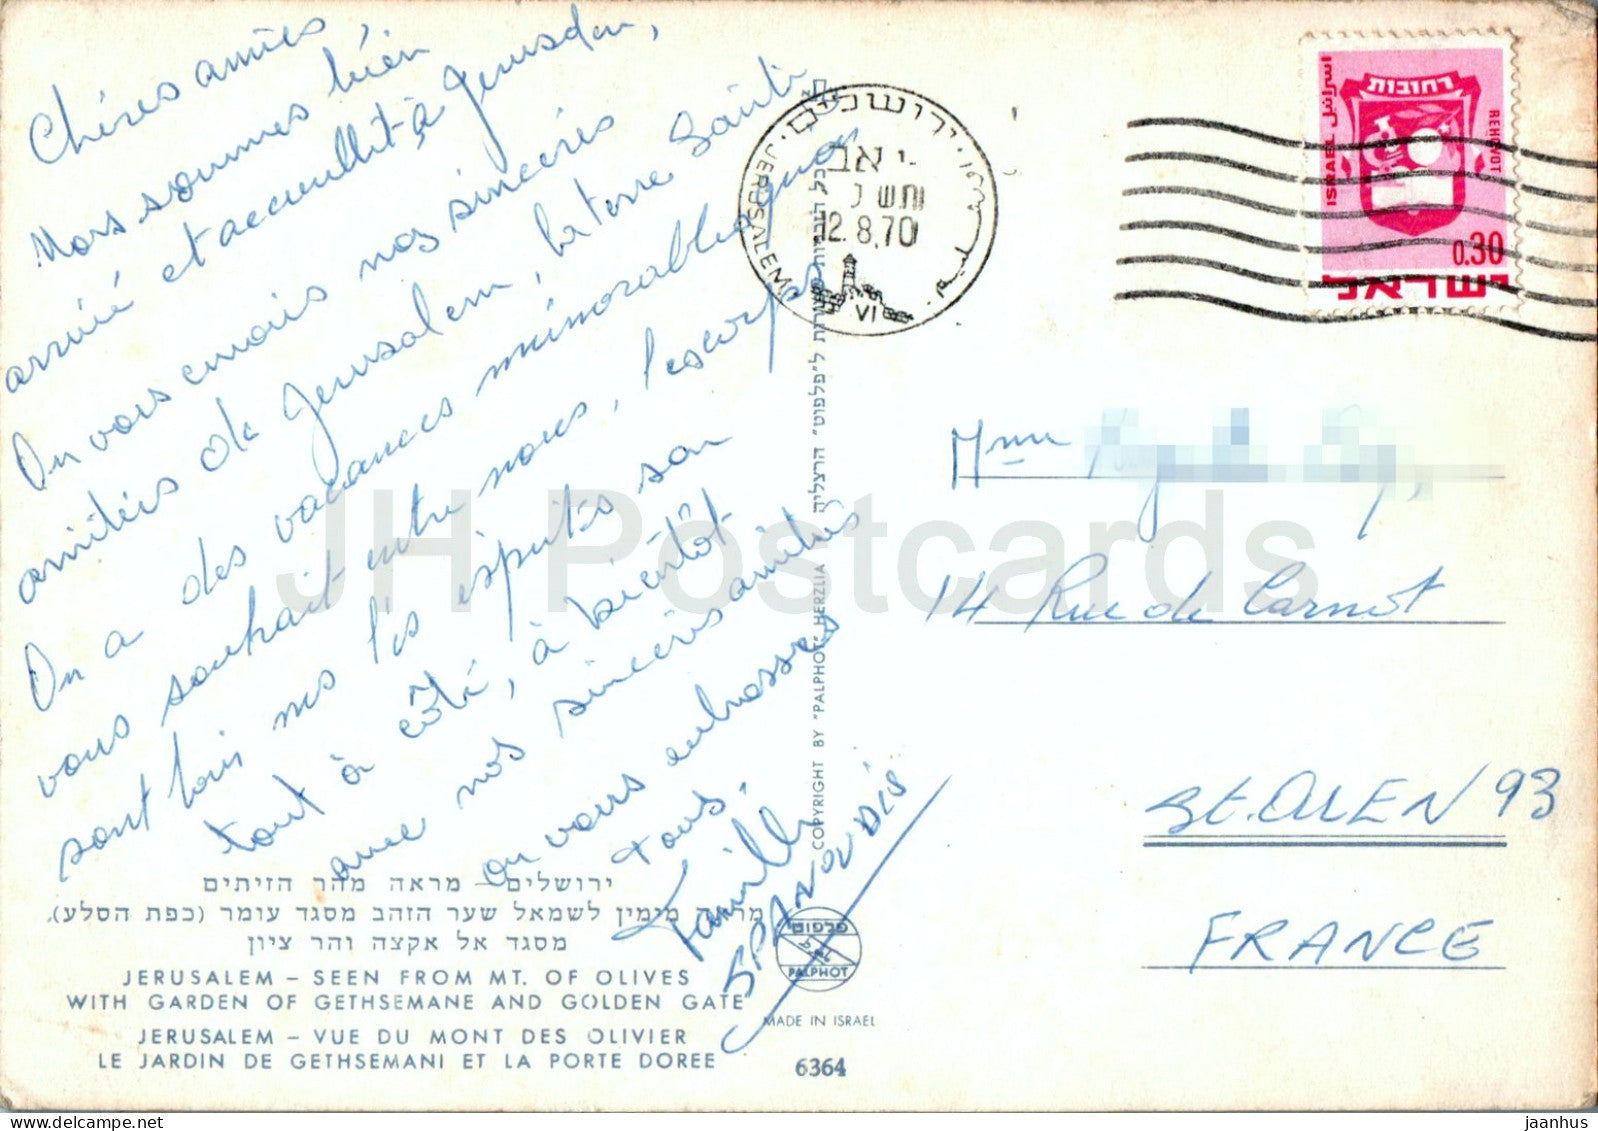 Chères amies,
Nous sommes bién
arrivé et accueillit à Jerusalem,
On vous envoies nos sincères
amitiés de Jerusalem, la terre Sainte
On a des vacances mémorables, nous
vous souhait entre nous, les corps
sont loin mes lés esprités son
tout à côté, à bientôt
avec nos sincères amitiés
on vous embrasses
tous.
Famille
SPANOUDIS
ירושלים – מראה מהר הזיתים
מימין לשמאל שער הזהב מסגד עומר (כפת הסלע),
מסגד אל אקצה והר ציון
JERUSALEM – SEEN FROM MT. OF OLIVES
WITH GARDEN OF GETHSEMANE AND GOLDEN GATE
JERUSALEM – VUE DU MONT DES OLIVIER
LE JARDIN DE GETHSEMANI ET LA PORTE DOREE
כל הזכויות שמורות ל"פלפוט" הרצליה
COPYRIGHT BY "PALPHOT" HERZLIA
פלפוט
PALPHOT
MADE IN ISRAEL
6364
ירושלים
JERUSALEM
י אב
תש ל
12.8.70
VI
اسرائيل
ISRAEL
רחובות
REHOVOT
0.30
ישראל
Mme
14 Rue de Carnot
St. OUEN 93
FRANCE
JH Postcards
www.delcampe.net
jaanhus